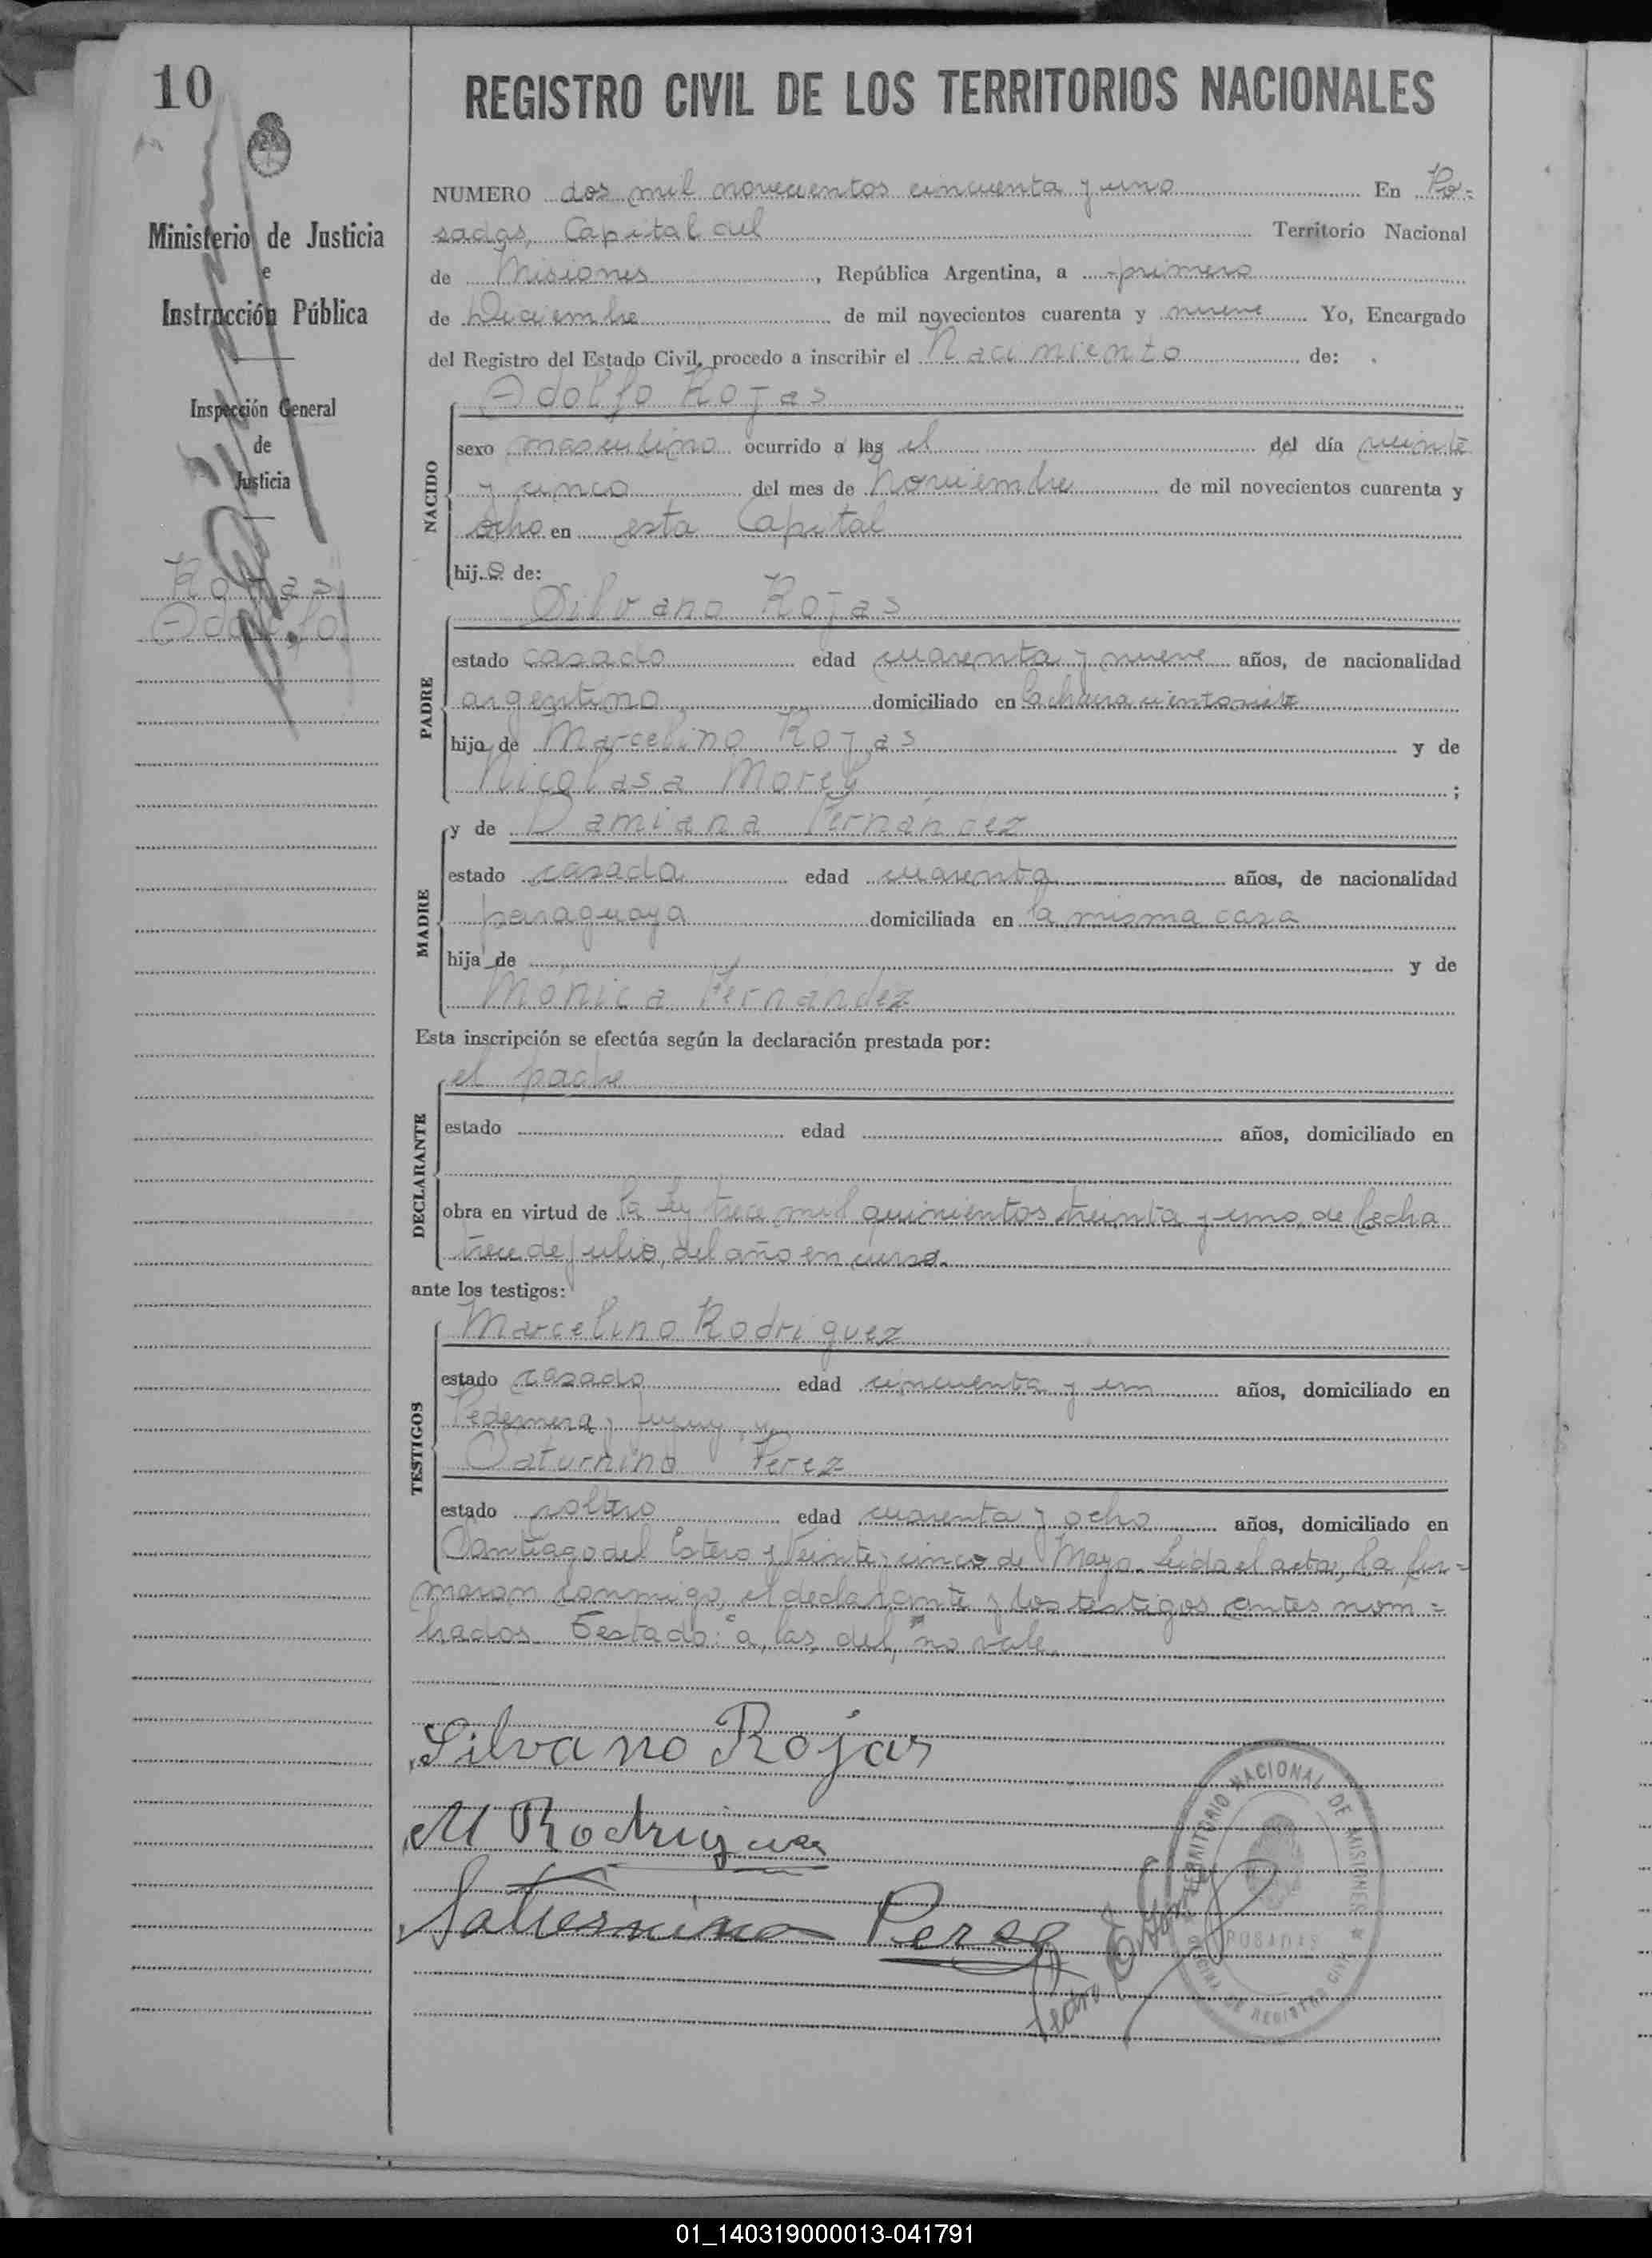 10
REGISTRO CIVIL DE LOS TERRITORIOS NACIONALES
Ministerio de Justicia
e
Instrucción Pública
Inspección General
de
Justicia
Rojas
Adolfo
NUMERO dos mil novecientos cincuenta y uno En Po-
sadas, Capital del Territorio Nacional
de Misiones, República Argentina, a primero
de Diciembre de mil novecientos cuarenta y nueve Yo, Encargado
del Registro del Estado Civil, procedo a inscribir el Nacimiento de:
Adolfo Rojas
NACIDO
sexo masculino ocurrido a las el del día veinte
y cinco del mes de Noviembre de mil novecientos cuarenta y
ocho en esta Capital
hijo de:
Silvano Rojas
PADRE
estado casado edad cuarenta y nueve años, de nacionalidad
argentino domiciliado en la chacra
hijo de Marcelino Rojas y de
Nicolasa ;
y de Damiana Fernández
MADRE
estado casada edad cuarenta años, de nacionalidad
paraguaya domiciliada en la misma casa
hija de y de
Mónica Fernandez
Esta inscripción se efectúa según la declaración prestada por:
el padre
DECLARANTE
estado edad años, domiciliado en
obra en virtud de la ley trece mil quinientos treinta y uno, de fecha
trece de julio, del año en curso.
ante los testigos:
Marcelino Rodriguez
TESTIGOS
estado casado edad cincuenta y un años, domiciliado en
Pedernera y Jujuy, y
Saturnino Perez
estado soltero edad cuarenta y ocho años, domiciliado en
Santiago del Estero y Veinte y cinco de Mayo. Leida el acta, la fir-
maron conmigo, el declarante y los testigos antes nom-
brados. Testado: "a, las, del," no vale.
Silvano Rojas
M Rodriguez
Saturnino Perez
TERRITORIO NACIONAL DE MISIONES
POSADAS
OFICINA DE REGISTRO CIVIL
01_140319000013-041791